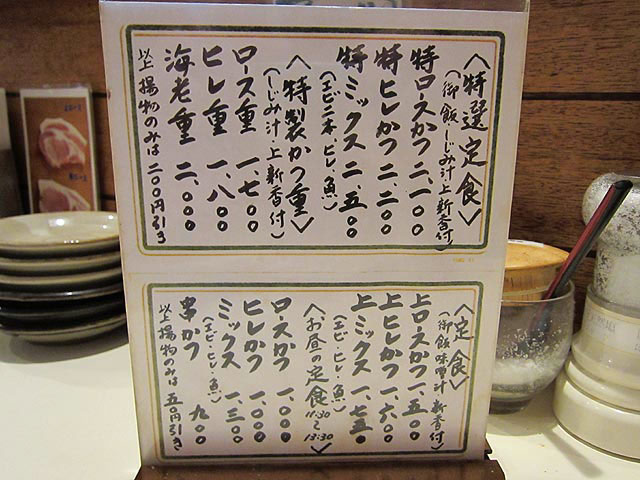 〈特選定食〉
(御飯・しじみ汁・上新香付)
特ロースかつ 二、一〇〇
特ヒレかつ 二、二〇〇
特ミックス 二、五〇〇
(エビ二本・ヒレ・魚)
〈特製かつ重〉
(しじみ汁・上新香付)
ロース重 一、七〇〇
ヒレ重 一、八〇〇
海老重 二、〇〇〇
以上揚物のみは二〇〇円引き
〈定食〉
(御飯・味噌汁・新香付)
上ロースかつ 一、五〇〇
上ヒレかつ 一、六〇〇
上ミックス 一、七五〇
(エビ・ヒレ・魚)
〈お昼の定食 11:30〜13:30〉
ロースかつ 一、〇〇〇
ヒレかつ 一、〇〇〇
ミックス 一、三〇〇
(エビ・ヒレ・魚)
串かつ 九〇〇
以上揚物のみは五〇円引き